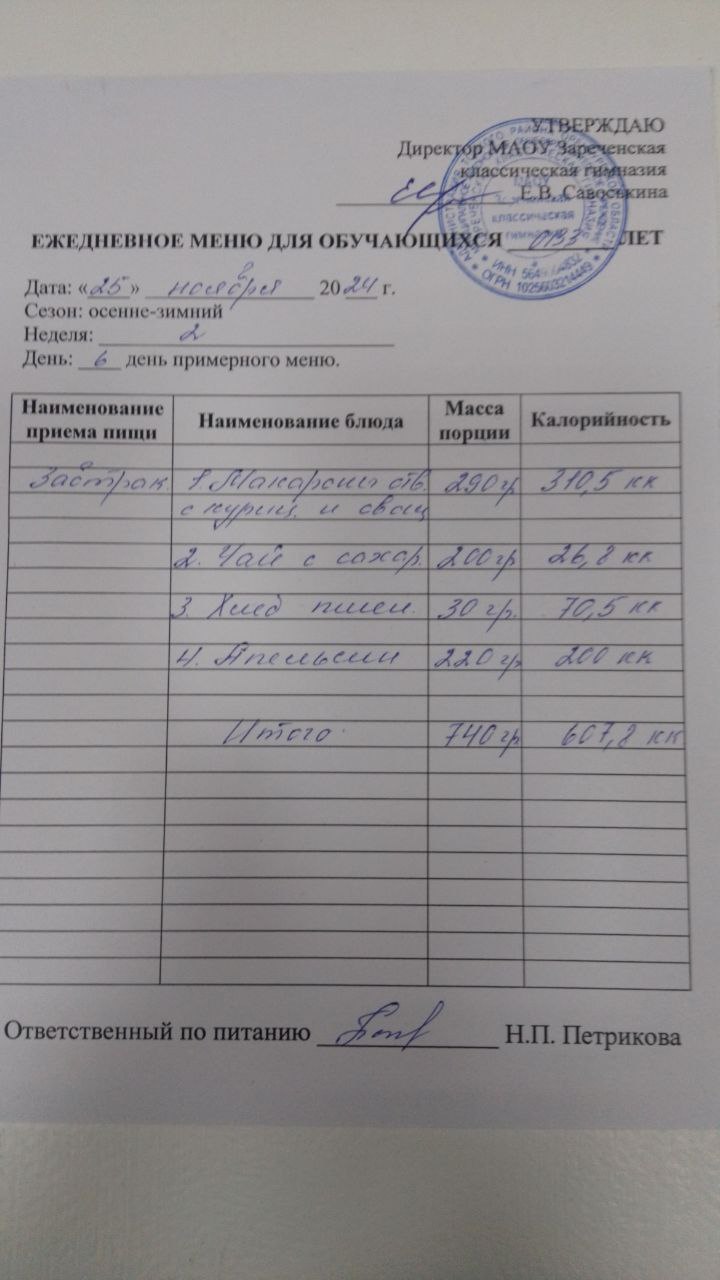 УТВЕРЖДАЮ
Директор МАОУ Зареченская
классическая гимназия
Е.В. Савоськина
ЕЖЕДНЕВНОЕ МЕНЮ ДЛЯ ОБУЧАЮЩИХСЯ ОВЗ ЛЕТ
Дата: «25» ноября 2024 г.
Сезон: осенне-зимний
Неделя: 2
День: 6 день примерного меню.
Наименование приема пищи Наименование блюда Масса порции Калорийность
Завтрак 1. Макароны отв. 290 гр 310,5 кк
с куриц. и овощ
2. Чай с сахар. 200 гр 26,8 кк
3. Хлеб пшен. 30 гр. 70,5 кк
4. Апельсин 220 гр 200 кк
Итого 740 гр 607,8 кк
Ответственный по питанию Н.П. Петрикова
классическая
гимназия
ОГРН 1025603214449